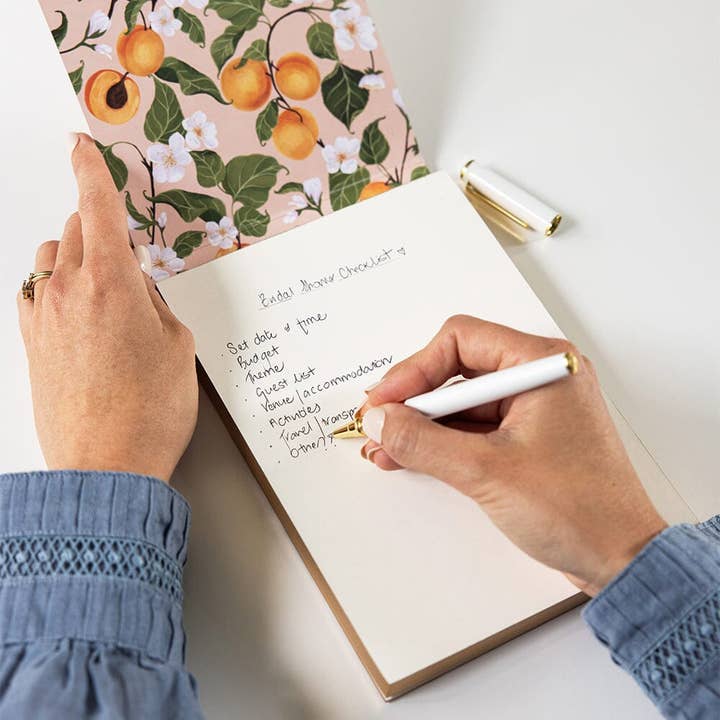 Bridal Shower Checklist ♡
· Set date & time
· Budget
· Theme
· Guest list
· Venue / accommodation
· Activities
· Travel / transp
· Other!?